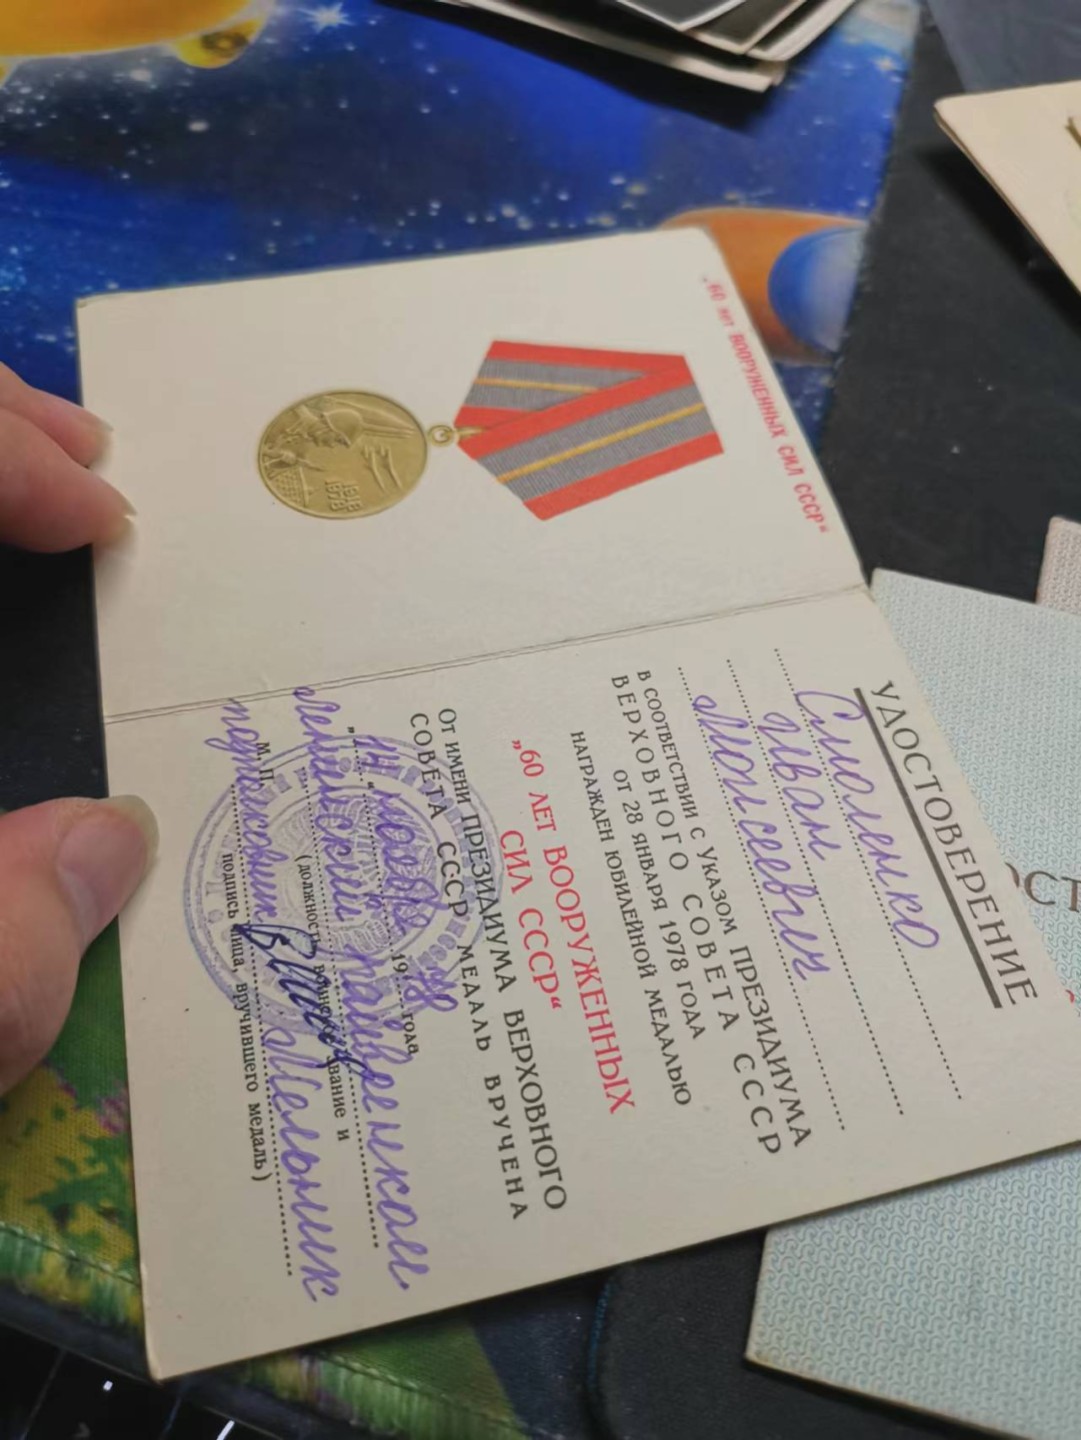 „60 лет ВООРУЖЕННЫХ СИЛ СССР“
1918
1978
УДОСТОВЕРЕНИЕ
Смоленко
Иван
Моисеевич
В СООТВЕТСТВИИ С УКАЗОМ ПРЕЗИДИУМА
ВЕРХОВНОГО СОВЕТА СССР
ОТ 28 ЯНВАРЯ 1978 ГОДА
НАГРАЖДЕН ЮБИЛЕЙНОЙ МЕДАЛЬЮ
„60 ЛЕТ ВООРУЖЕННЫХ
СИЛ СССР“
ОТ ИМЕНИ ПРЕЗИДИУМА ВЕРХОВНОГО
СОВЕТА СССР МЕДАЛЬ ВРУЧЕНА
19 78 года
Ленинский райвоенком
(должность, воинское звание и
М. П. подполковник Мельник
подпись лица, вручившего медаль)
ОСТ